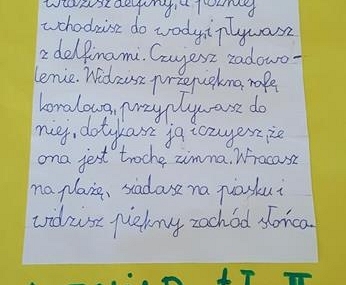 widzisz delfiny, a później
wchodzisz do wody, i pływasz
z delfinami. Czujesz zadowo-
lenie. Widzisz przepiękną rafę
koralową, przypływasz do
niej, dotykasz ją i czujesz, że
ona jest trochę zimna. Wracasz
na plażę, siadasz na piasku i
widzisz piękny zachód słońca.